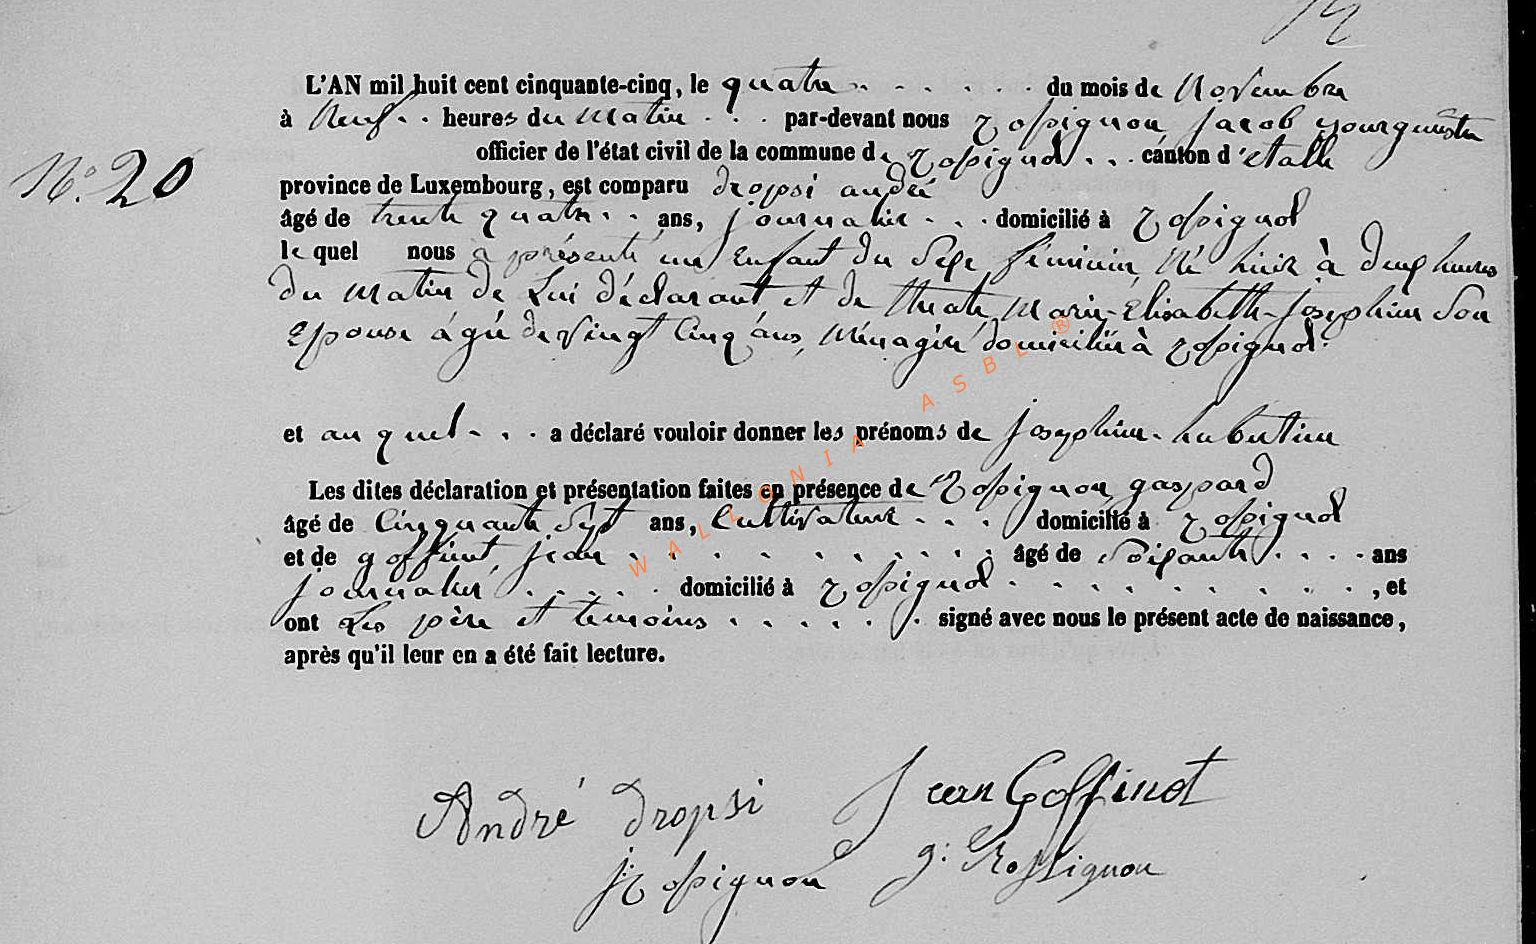 12
L'AN mil huit cent cinquante-cinq, le quatre . . . . . . du mois de Novembre
à Neuf . . heures du matin . . . par-devant nous Rossignon Jacob Bourgmestre
N.° 20
officier de l'état civil de la commune de Rossignol . . . canton d'étalle
province de Luxembourg, est comparu dropsi andré
âgé de trente quatre . . ans, journalier . . . domicilié à Rossignol
le quel nous à présenté un Enfant du Sexe féminin, Né hiér à deux heures
du matin de Lui déclarant et de Marie-Elisabeth-Joséphine Son
Epouse âgée de Vingt Cinq ans, Ménagère domiciliée à Rossignol.
et au quel . . . a déclaré vouloir donner les prénoms de joséphine-hubertine
Les dites déclaration et présentation faites en présence de Rossignon gaspard
âgé de Cinquante Sept ans, Cultivateur . . . domicilié à Rossignol
et de goffinet, jean . . . . . . . . . . . âgé de Soixante . . . . ans
journalier . . . . . domicilié à Rossignol . . . . . . . . . , et
ont Les père et temoins . . . . . . . signé avec nous le présent acte de naissance,
après qu'il leur en a été fait lecture.
WALLONIA ASBL ®
André dropsi Jean Goffinet
J: Rossignon g: Rossignon